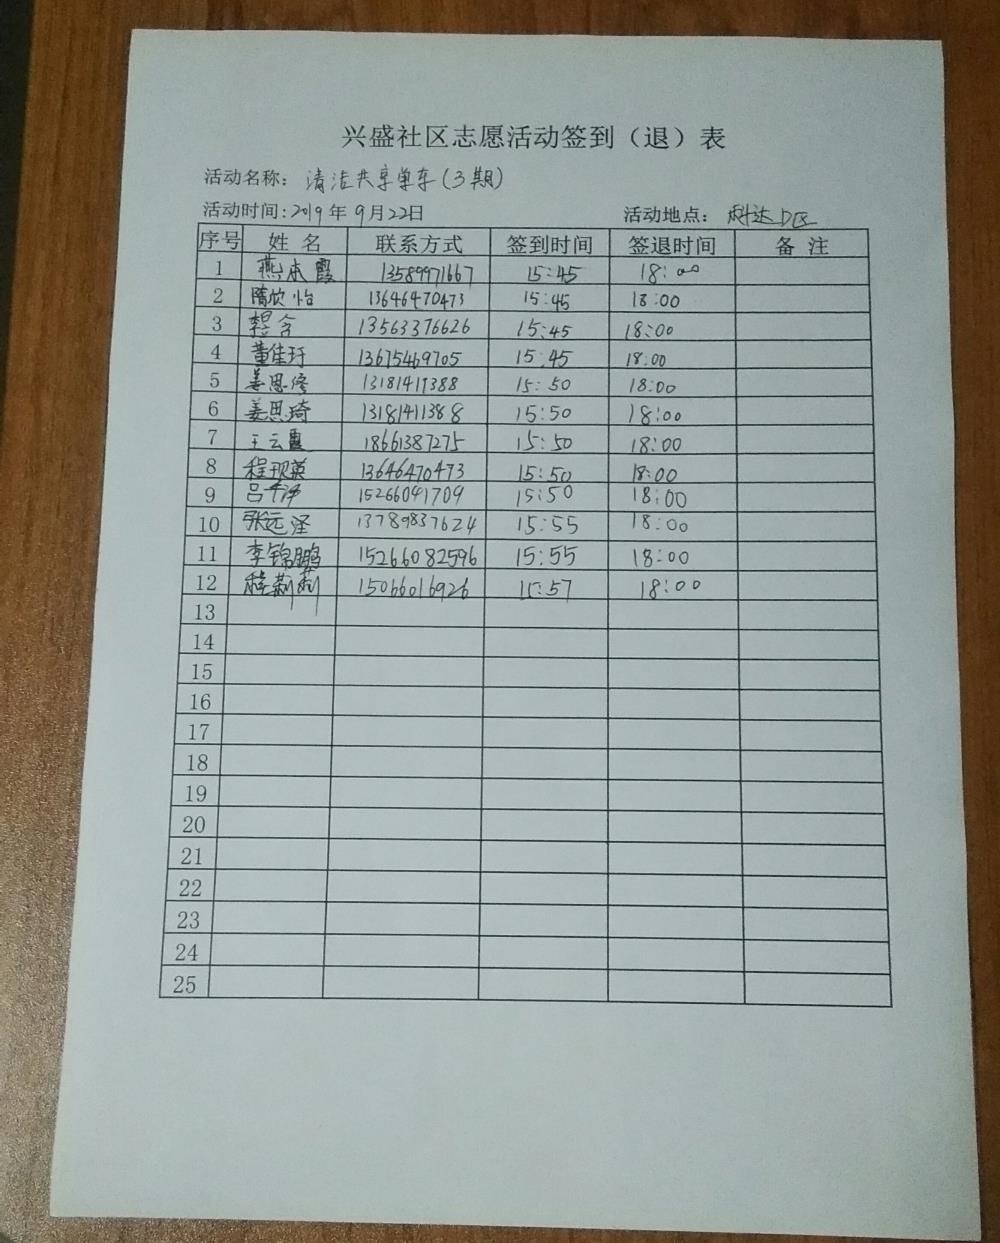 兴盛社区志愿活动签到（退）表
活动名称：清洁共享单车(3期)
活动时间:2019年9月22日 活动地点：科达D区
序号 姓名 联系方式 签到时间 签退时间 备注
1 燕本霞 13589971667 15:45 18:00
2 隋欣怡 13646470473 15:45 18:00
3 13563376626 15:45 18:00
4 董佳玗 13675469705 15:45 18:00
5 姜思修 13181411388 15:50 18:00
6 姜思琦 13181411388 15:50 18:00
7 王云霞 18661387275 15:50 18:00
8 程现英 13646470473 15:50 18:00
9 15266041709 15:50 18:00
10 张远泽 13789837624 15:55 18:00
11 李锦鹏 15266082596 15:55 18:00
12 15066016926 15:57 18:00
13
14
15
16
17
18
19
20
21
22
23
24
25